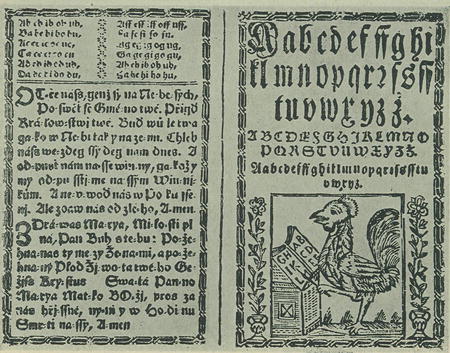 Ab eb ib ob ub, Aff eff iff off uff,
Ba be bi bo bu, Fa fe fi fo fu,
Ac ec ic oc uc, Ag eg ig og ug,
Ca ce ci co cu Ga ge gi go gu,
Ad ed id od ud Ah eh ih oh uh,
Da de di do du, Ha he hi ho hu,
OTče náß, genž sy na Ne-be-sých,
Po-swět se Gmé-no twé. Přigď
Krá-low-stwj twé. Buď wů-le twá
ga-ko w Ne-bi tak y na ze-mi. Chléb
náß we-zdeg ssý deg nám dnes. A
od-pusť nám na-sse winny, ga-kož y
my od-pu-sstj-me na-ssým Win-nj-
kům. A ne-v-woď nás w Po-ku-sse-
nj. Ale zbaw nás od zlé-ho, A-men.
ZDrá-was Ma-rya, Mi-lo-sti pl-
ná, Pan Bůh s te-bu: Po-že-
hna-nás ty me-zy Že-na-mi, a po-že-
hna-ný Plod Ži-wo-ta twé-ho Ge-
žjss Kry-stus Swa-tá Pan-no
Ma-rya Mat-ko BO-žj, pros za
nás hřj-ssné, ny-nj y w Ho-di-nu
Smr-ti na-ssý, A-men
Aabcdefffghi
klmnopqrrſsſſ
tuvwxyzž.
ABCDEFGHIJKLMNO
PQRSTVUWXYZŽ
Aabcdefffghiklmnopqrsſsſſtu
vwxyz.
GHAB
ICDE
KLF